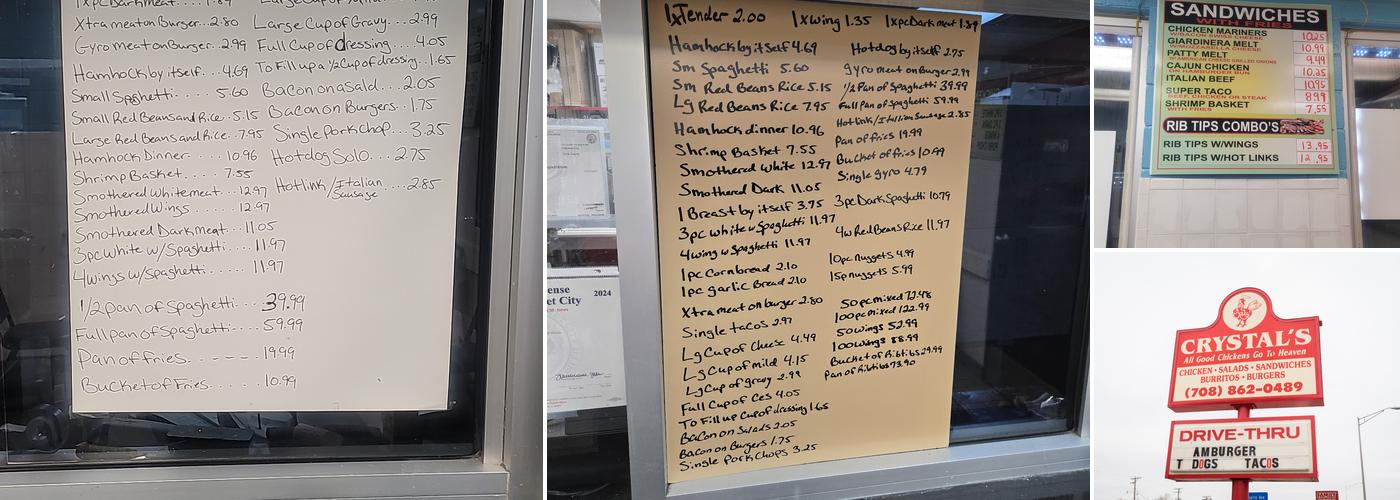 Xtra meat on Burger..2.80 Large Cup of Gravy....2.99
Gyro meat on Burger..2.99 Full Cup of dressing....4.05
Hamhock by itself....4.69 To Fill up a 1/2 Cup of dressing..1.65
Small Spghetti.....5.60 Bacon on a Salad...2.05
Small Red Beans and Rice.5.15 Bacon on Burgers..1.75
Large Red Beans and Rice.7.95 Single Pork Chop...3.25
Hamhock Dinner....10.96 Hotdog Solo....2.75
Shrimp Basket....7.55
Smothered White meat..12.97 Hotlink/Italian Sausage....2.85
Smothered Wings.....12.97
Smothered Dark meat...11.05
3pc White w/Spaghetti...11.97
4wings w/Spaghetti.....11.97
1/2 pan of Spaghetti....39.99
Full pan of Spaghetti....59.99
Pan of Fries.-----.19.99
Bucket of Fries......10.99
1xTender 2.00 1xwing 1.35 1xpc Dark meat 1.89
Hamhock by itself 4.69
Sm Spaghetti 5.60
Sm Red Beans Rice 5.15
Lg Red Beans Rice 7.95
Hamhock dinner 10.96
Shrimp Basket 7.55
Smothered White 12.97
Smothered Dark 11.05
1 Breast by itself 3.75
3pc white w Spaghetti 11.97
4wing w Spaghetti 11.97
1pc Cornbread 2.10
1pc garlic Bread 2.10
Xtra meat on burger 2.80
Single tacos 2.97
Lg Cup of Cheese 4.49
Lg Cup of mild 4.15
Lg Cup of gravy 2.99
Full Cup of Ces 4.05
To Fill up Cup of dressing 1.65
Bacon on Salads 2.05
Bacon on Burgers 1.75
Single Pork Chops 3.25
Hotdog by itself 2.75
gyro meat on Burger 2.99
1/2 Pan of Spaghetti 39.99
Full Pan of Spaghetti 59.99
Hotlink/Itallian Sausage 2.85
Pan of fries 19.99
Bucket of fries 10.99
Single gyro 4.79
3pc Dark Spaghetti 10.79
4w Red Beans Rice 11.97
10pc nuggets 4.99
15p nuggets 5.99
50pc mixed 72.48
100pc mixed 122.99
50 wings 52.99
100 wings 88.99
Bucket of Ribtibs 29.99
Pan of Ribtibs 73.90
2024
SANDWICHES
WITH FRIES
CHICKEN MARINERS 10.25
W/BACON SWISS CHEESE
GIARDINERA MELT 10.99
W/MOZZARELLA CHEESE
PATTY MELT 9.49
W/ AMERICAN CHEESE GRILLED ONIONS
CAJUN CHICKEN 10.25
ON HAMBURGER BUN
ITALIAN BEEF 10.95
SUPER TACO 8.99
BEEF, CHICKEN OR STEAK
SHRIMP BASKET 7.55
WITH FRIES
RIB TIPS COMBO'S
RIB TIPS W/WINGS 13.95
RIB TIPS W/HOT LINKS 12.95
CRYSTAL'S
All Good Chickens Go To Heaven
CHICKEN • SALADS • SANDWICHES
BURRITOS • BURGERS
(708) 862-0489
DRIVE-THRU
AMBURGER
T DOGS TACOS